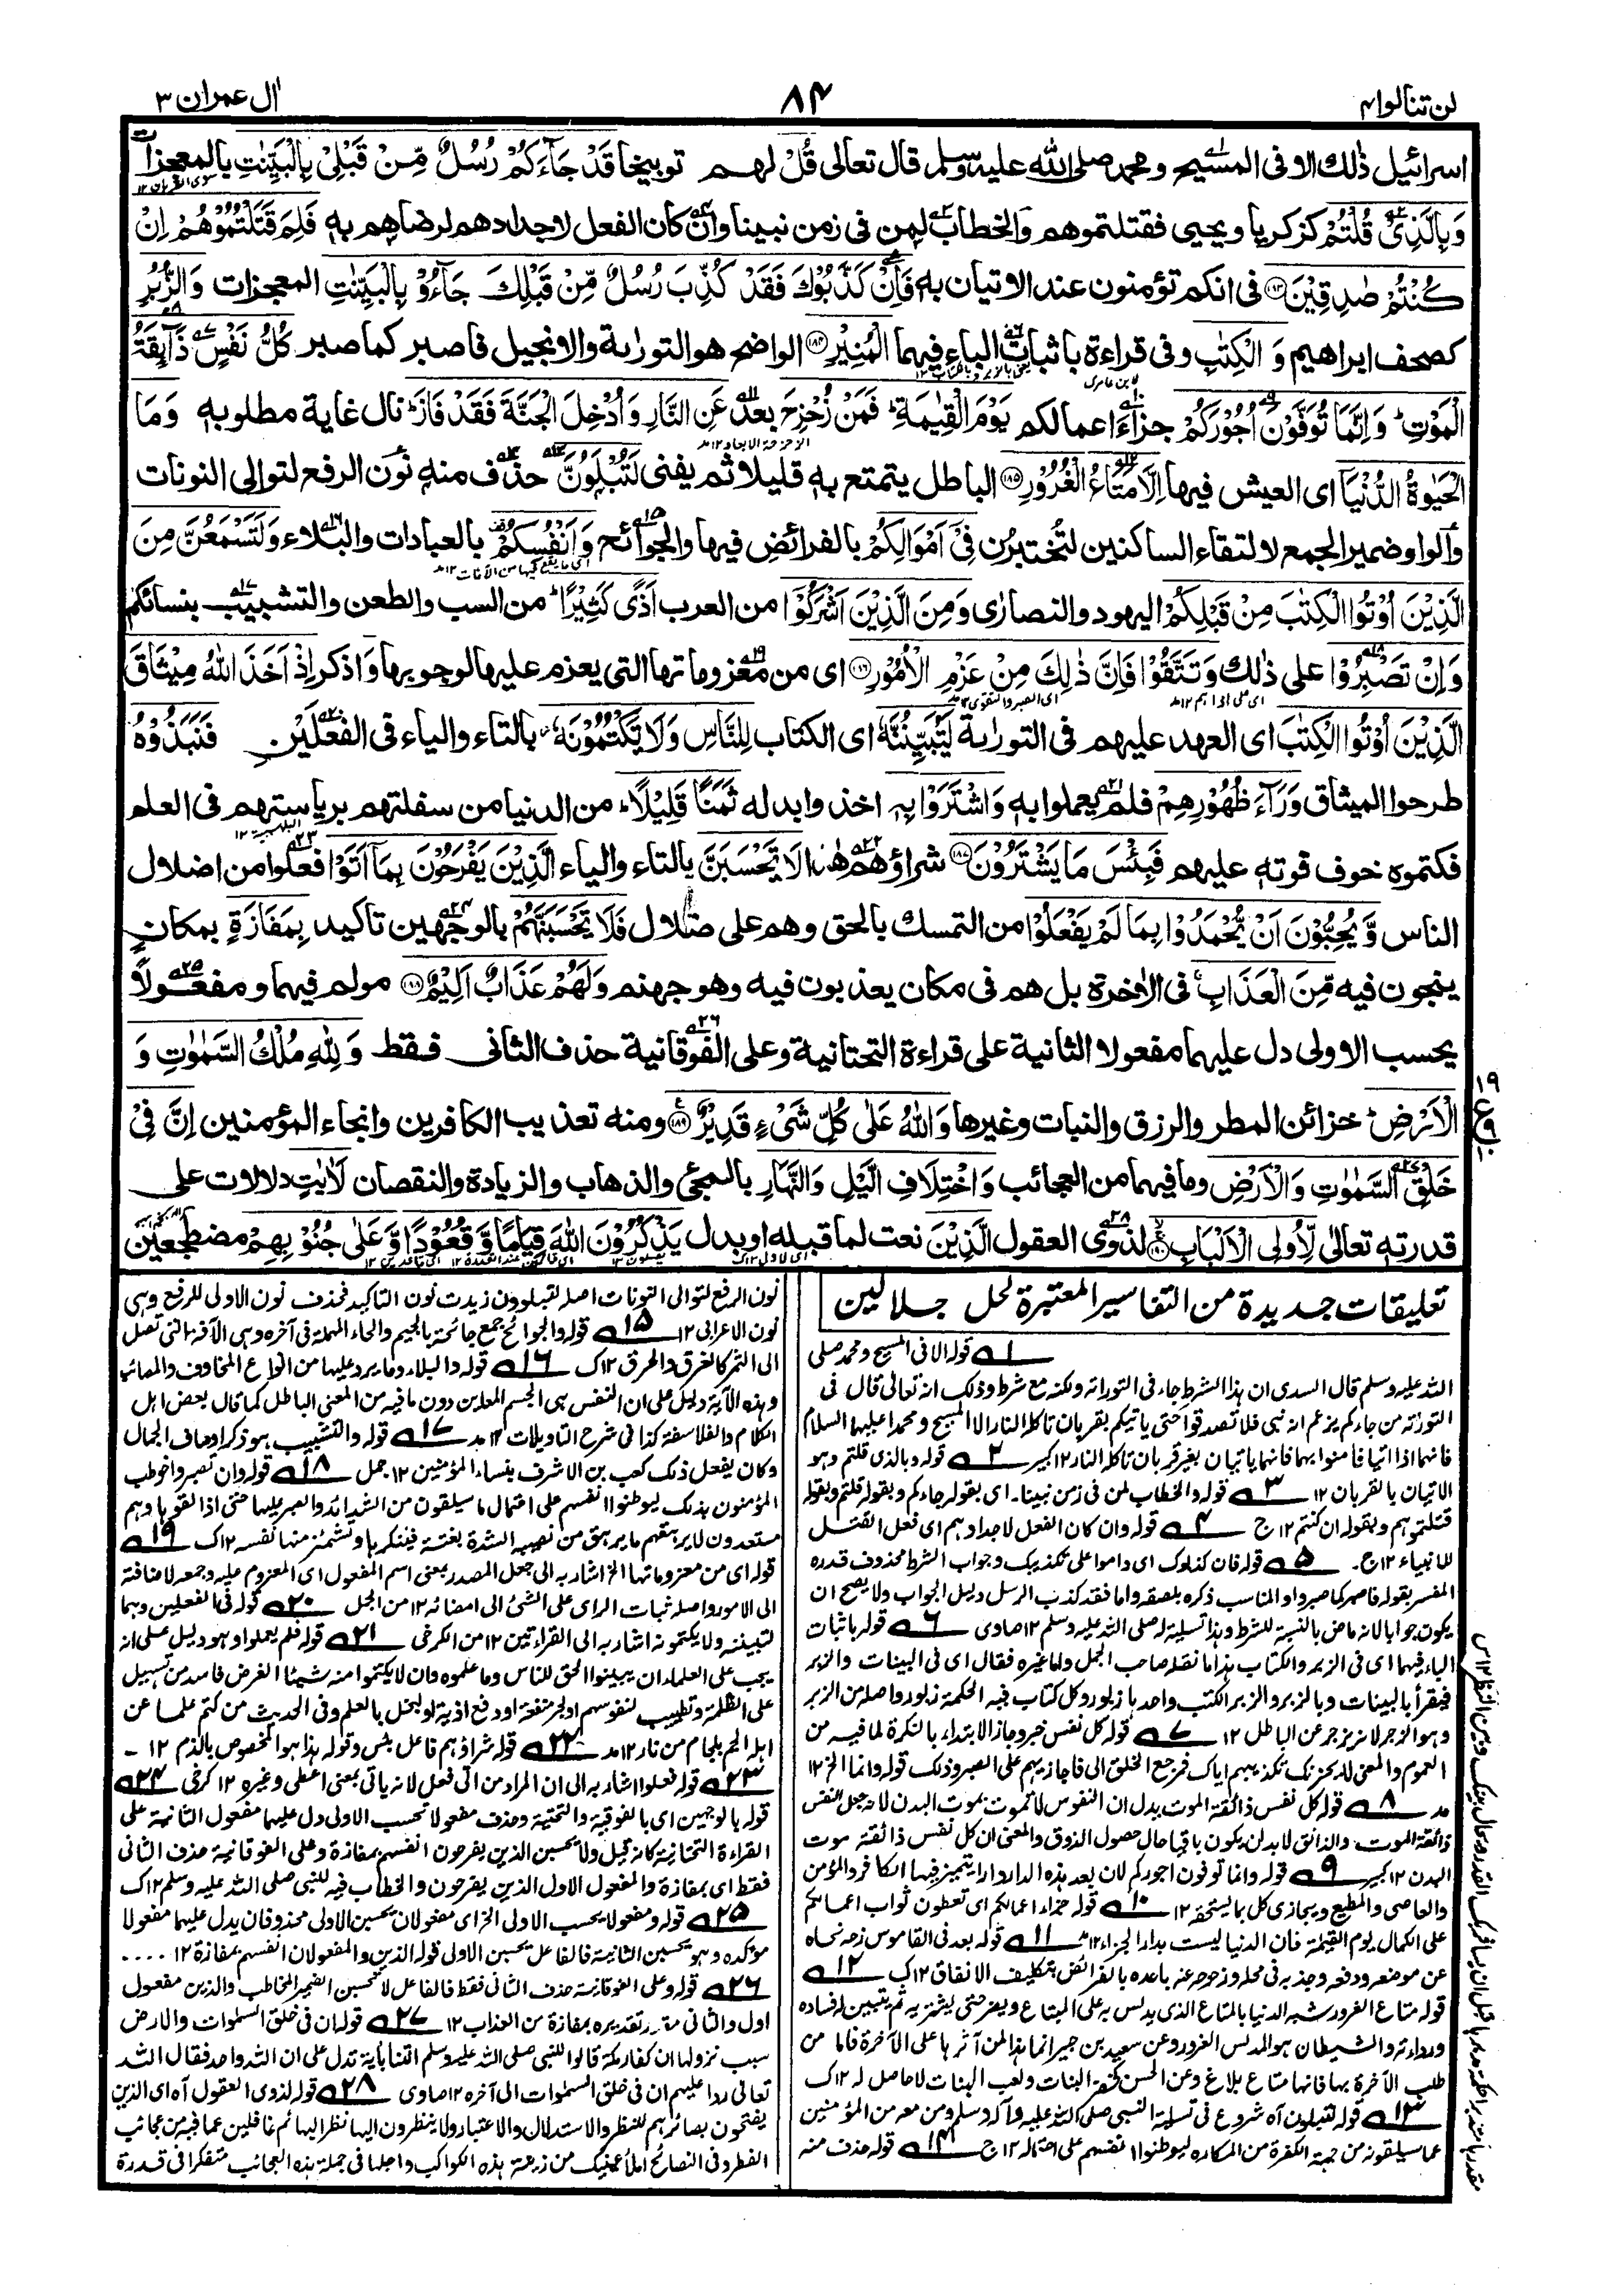 لن تنالوا ٤
٨٤
اٰل عمران ٣
اسرائيل ذٰلك الا فى المسيح و محمد صلى الله عليه وسلم قال تعالى قُلْ لهم توبيخا قَدْ جَآءَكُمْ رُسُلٌ مِّنْ قَبْلِىْ بِالْبَيِّنٰتِ بالمعجزات
وَبِالَّذِىْ قُلْتُمْ كزكريا ويحيى فقتلتموهم والخطاب لمن فى زمن نبينا وان كان الفعل لاجدادهم لرضاهم به فَلِمَ قَتَلْتُمُوْهُمْ اِنْ
كُنْتُمْ صٰدِقِيْنَ ۝١٨٣ فى انكم تؤمنون عند الاتيان به فَاِنْ كَذَّبُوْكَ فَقَدْ كُذِّبَ رُسُلٌ مِّنْ قَبْلِكَ جَآءُوْ بِالْبَيِّنٰتِ المعجزات وَالزُّبُرِ
كصحف ابراهيم وَ الْكِتٰبِ وفى قراءة باثبات الباء فيهما الْمُنِيْرِ ۝١٨٤ الواضح هو التوراىة والانجيل فاصبر كما صبر كُلُّ نَفْسٍ ذَآئِقَةُ
الْمَوْتِ ؕ وَاِنَّمَا تُوَفَّوْنَ اُجُوْرَكُمْ جزاء اعمالكم يَوْمَ الْقِيٰمَةِ ؕ فَمَنْ زُحْزِحَ بعد عَنِ النَّارِ وَاُدْخِلَ الْجَنَّةَ فَقَدْ فَازَ ؕ نال غاية مطلوبه وَمَا
الْحَيٰوةُ الدُّنْيَآ اى العيش فيها اِلَّا مَتَاعُ الْغُرُوْرِ ۝١٨٥ الباطل يتمتع به قليلا ثم يفنى لَتُبْلَوُنَّ حذف منه نون الرفع لتوالى النونات
والواو ضمير الجمع لالتقاء الساكنين لتُختبرُن فِىْٓ اَمْوَالِكُمْ بالفرائض فيها والجوائح وَاَنْفُسِكُمْ بالعبادات والبلاء وَلَتَسْمَعُنَّ مِنَ
الَّذِيْنَ اُوْتُوا الْكِتٰبَ مِنْ قَبْلِكُمْ اليهود والنصارى وَمِنَ الَّذِيْنَ اَشْرَكُوْٓا من العرب اَذًى كَثِيْرًا ؕ من السب والطعن والتشبيب بنسائكم
وَاِنْ تَصْبِرُوْا على ذٰلك وَتَتَّقُوْا فَاِنَّ ذٰلِكَ مِنْ عَزْمِ الْاُمُوْرِ ۝١٨٦ اى من معزوماتها التى يعزم عليها لوجوبها وَاذكر اِذْ اَخَذَ اللهُ مِيْثَاقَ
الَّذِيْنَ اُوْتُوا الْكِتٰبَ اى العهد عليهم فى التوراىة لَيُبَيِّنُنَّهٗ اى الكتاب لِلنَّاسِ وَلَا يَكْتُمُوْنَهٗ بالتاء والياء فى الفعلين فَنَبَذُوْهُ
طرحوا الميثاق وَرَآءَ ظُهُوْرِهِمْ فلم يعملوا به وَاشْتَرَوْا بِهٖ اخذوا بدله ثَمَنًا قَلِيْلًا ؕ من الدنيا من سفلتهم برياستهم فى العلم
فكتموه خوف فوته عليهم فَبِئْسَ مَا يَشْتَرُوْنَ ۝١٨٧ شراؤهم هٰذا لَا تَحْسَبَنَّ بالتاء والياء الَّذِيْنَ يَفْرَحُوْنَ بِمَآ اَتَوْا فعلوا من اضلال
الناس وَّيُحِبُّوْنَ اَنْ يُّحْمَدُوْا بِمَا لَمْ يَفْعَلُوْا من التمسك بالحق وهم على ضلال فَلَا تَحْسَبَنَّهُمْ بالوجهين تاكيد بِمَفَازَةٍ بمكان
ينجون فيه مِّنَ الْعَذَابِ ۚ فى الاٰخرة بل هم فى مكان يعذبون فيه وهو جهنم وَلَهُمْ عَذَابٌ اَلِيْمٌ ۝١٨٨ مولم فيهما ومفعولا
يحسب الاولى دل عليهما مفعولا الثانية على قراءة التحتانية وعلى الفوقانية حذف الثانى فقط وَ لِلهِ مُلْكُ السَّمٰوٰتِ وَ
الْاَرْضِ ؕ خزائن المطر والرزق والنبات وغيرها وَاللهُ عَلٰى كُلِّ شَىْءٍ قَدِيْرٌ ۝١٨٩ ومنه تعذيب الكافرين وانجاء المؤمنين اِنَّ فِىْ
خَلْقِ السَّمٰوٰتِ وَالْاَرْضِ وما فيهما من العجائب وَاخْتِلَافِ الَّيْلِ وَالنَّهَارِ بالمجئ والذهاب والزيادة والنقصان لَاٰيٰتٍ دلالات على
قدرته تعالى لِّاُولِى الْاَلْبَابِ ۝١٩٠ لذوى العقول الَّذِيْنَ نعت لما قبله او بدل يَذْكُرُوْنَ اللهَ قِيَامًا وَّقُعُوْدًا وَّعَلٰى جُنُوْبِهِمْ مضطجعين
تعليقات جديدة من التفاسير المعتبرة لحل جلالين
١ قوله الا فى المسيح ومحمد صلى
الله عليه وسلم قال السدى ان هذا الشرط جاء فى التوراة ولكنه مع شرط وذلك انه تعالى قال فى
التوراة من جاءكم يزعم انه نبى فلا تصدقوا حتى ياتيكم بقربان تاكله النار الا المسيح و محمدا عليهما السلام
فانهما اذا اتيا فآمنوا بهما فانهما ياتيان بغير قربان تاكله النار ١٢ كبير ٢ قوله وبالذى قلتم وهو
الاتيان بالقربان ١٢ ٣ قوله والخطاب لمن فى زمن نبينا۔ اى بقوله جاءكم وبقوله قلتم وبقوله
قتلتموهم وبقوله ان كنتم ١٢ ج ٤ قوله وان كان الفعل لاجدادهم اى فعل القتل
للانبياء ١٢ ج۔ ٥ قوله فان كذبوك اى داموا على تكذيبك وجواب الشرط محذوف قدره
المفسر بقوله فاصبر كما صبروا والمناسب ذكره بلصقه واما فقد كذب الرسل دليل الجواب ولا يصح ان
يكون جوابا لانه ماض بالنسبة للشرط وهذا تسلية له صلى الله عليه وسلم ١٢ صاوى ٦ قوله باثبات
الباء فيهما اى فى الزبر والكتاب هذا ما نقله صاحب الجمل واما غيره فقال اى فى البينات والزبر
فيقرأ بالبينات وبالزبر والزبر الكتب واحدها زبور وكل كتاب فيه الحكمة زبور واصله من الزبر
وهو الزجر لانه يزجر عن الباطل ١٢ ٧ قوله كل نفس خبر وجاز الابتداء بالنكرة لما فيه من
العموم والمعنى لا يحزنك تكذيبهم اياك فمرجع الخلق الى فاجازيهم على الصبر وذلك قوله وانما الخ ١٢
مد ٨ قوله كل نفس ذائقة الموت يدل ان النفوس لا تموت بموت البدن لانه جعل النفس
ذائقة الموت، والذائق لابد ان يكون باقيا حال حصول الذوق والمعنى ان كل نفس ذائقة موت
البدن ١٢ كبير ٩ قوله وانما توفون اجوركم لان بعد هذه الدار دارا يتميز فيها الكافر والمؤمن
والعاصى والمطيع ويجازى كل بما يستحقه ١٢ ١٠ قوله جزاء اعمالكم اى تعطون ثواب اعمالكم
على الكمال يوم القيمة فان الدنيا ليست بدار الجزاء ١٢ مد ١١ قوله بعد فى القاموس زحه نحاه
عن موضعه ودفعه وجذبه فى محله وزحزحه عنه باعده بالفرائض بتكليف الانفاق ١٢ ك ١٢
قوله متاع الغرور شبه الدنيا بالمتاع الذى يدلس به على المبتاع ويغر حتى يشتريه ثم يتبين له فساده
ورداءته والشيطان هو المدلس الغرور وعن سعيد بن جبير انما هذا لمن آثرها على الآخرة فاما من
طلب الآخرة بها فانها متاع بلاغ وعن الحسن كخضرة النبات ولعب البنات لا حاصل له ١٢ ك
١٣ قوله لتبلون آه شروع فى تسلية النبى صلى الله عليه وآله وسلم ومن معه من المؤمنين
عما سيلقونه من جهة الكفرة من المكاره ليوطنوا انفسهم على احتماله ١٢ ج ١٤ قوله حذف منه
نون الرفع لتوالى النونات اصله لتبلوون زيدت نون التاكيد فحذف نون الاولى للرفع وهى
نون الاعرابى ١٢ ١٥ قوله والجوائح جمع جائحة بالجيم والحاء المهملة فى آخره وهى الآفة التى تصل
الى الثمر كالغرق والحرق ١٢ ك ١٦ قوله والبلاء وما يرد عليها من انواع المخاوف والمصائب
وهذه الآية دليل على ان النفس هى الجسم المعاين دون ما فيه من المعنى الباطل كما قال بعض اهل
الكلام والفلاسفة كذا فى شرح التاويلات ١٢ مد ١٧ قوله والتشبيب هو ذكر اوصاف الجمال
وكان يفعل ذلك كعب بن الاشرف بنساء المؤمنين ١٢ جمل ١٨ قوله وان تصبروا خوطب
المؤمنون بذلك ليوطنوا انفسهم على احتمال ما سيلقون من الشدائد والصبر عليها حتى اذا لقوها وهم
مستعدون لا يرهقهم ما يرهق من تصيبه الشدة بغتة فينكرها وتشمئز منها نفسه ١٢ ك ١٩
قوله اى من معزوماتها الخ اشار به الى جعل المصدر بمعنى اسم المفعول اى المعزوم عليه وجمعه لاضافته
الى الامور واصله ثبات الراى على الشئ الى امضائه ١٢ من الجمل ٢٠ قوله فى الفعلين وهما
لتبيننه ولا يكتمونه اشار به الى القراءتين ١٢ من الكرخى ٢١ قوله فلم يعملوا وهو دليل على انه
يجب على العلماء ان يبينوا الحق للناس وما علموه وان لا يكتموا منه شيئا الغرض فاسد من تسهيل
على الظلمة وتطييب لنفوسهم او لجر منفعة او دفع اذية او لبخل بالعلم وفى الحديث من كتم علما عن
اهله الجم بلجام من نار ١٢ مد ٢٢ قوله شراؤهم فاعل بئس وقوله هذا هو المخصوص بالذم ١٢ -
٢٣ قوله فعلوا اشار به الى ان المراد من اتى فعل لانه ياتى بمعنى اعطى وغيره ١٢ كرخى ٢٤
قوله بالوجهين اى بالفوقية والتحتية وحذف مفعولا تحسب الاولى دل عليهما مفعول الثانية على
القراءة التحتانية كانه قيل ولا يحسبن الذين يفرحون انفسهم بمفازة وعلى الفوقانية حذف الثانى
فقط اى بمفازة والمفعول الاول الذين يفرحون والخطاب فيه للنبى صلى الله عليه وسلم ١٢ ك
٢٥ قوله ومفعولا يحسب الاولى الخ اى مفعولان يحسبن الاولى محذوفان يدل عليهما مفعولا
مؤكده وهو يحسبن الثانية فالفاعل يحسبن الاولى قوله الذين والمفعولان انفسهم بمفازة ١٢ ....
٢٦ قوله وعلى الفوقانية حذف الثانى فقط فالفاعل لا تحسبن الضمير المخاطب والذين مفعول
اول والثانى مقدر تقديره بمفازة من العذاب ١٢ ٢٧ قوله ان فى خلق السموات والارض
سبب نزولها ان كفار مكة قالوا للنبى صلى الله عليه وسلم ائتنا بآية تدل على ان الله واحد فقال الله
تعالى ردا عليهم ان فى خلق السموات الى آخره ١٢ صاوى ٢٨ قوله لذوى العقول آه اى الذين
يفتحون بصائرهم للنظر والاستدلال والاعتبار ولا ينظرون اليها نظر البهائم غافلين عما فيها من عجائب
الفطر وفى النصائح املأ عينيك من زينة هذه الكواكب واجلها فى جملة هذه العجائب متفكرا فى قدرة